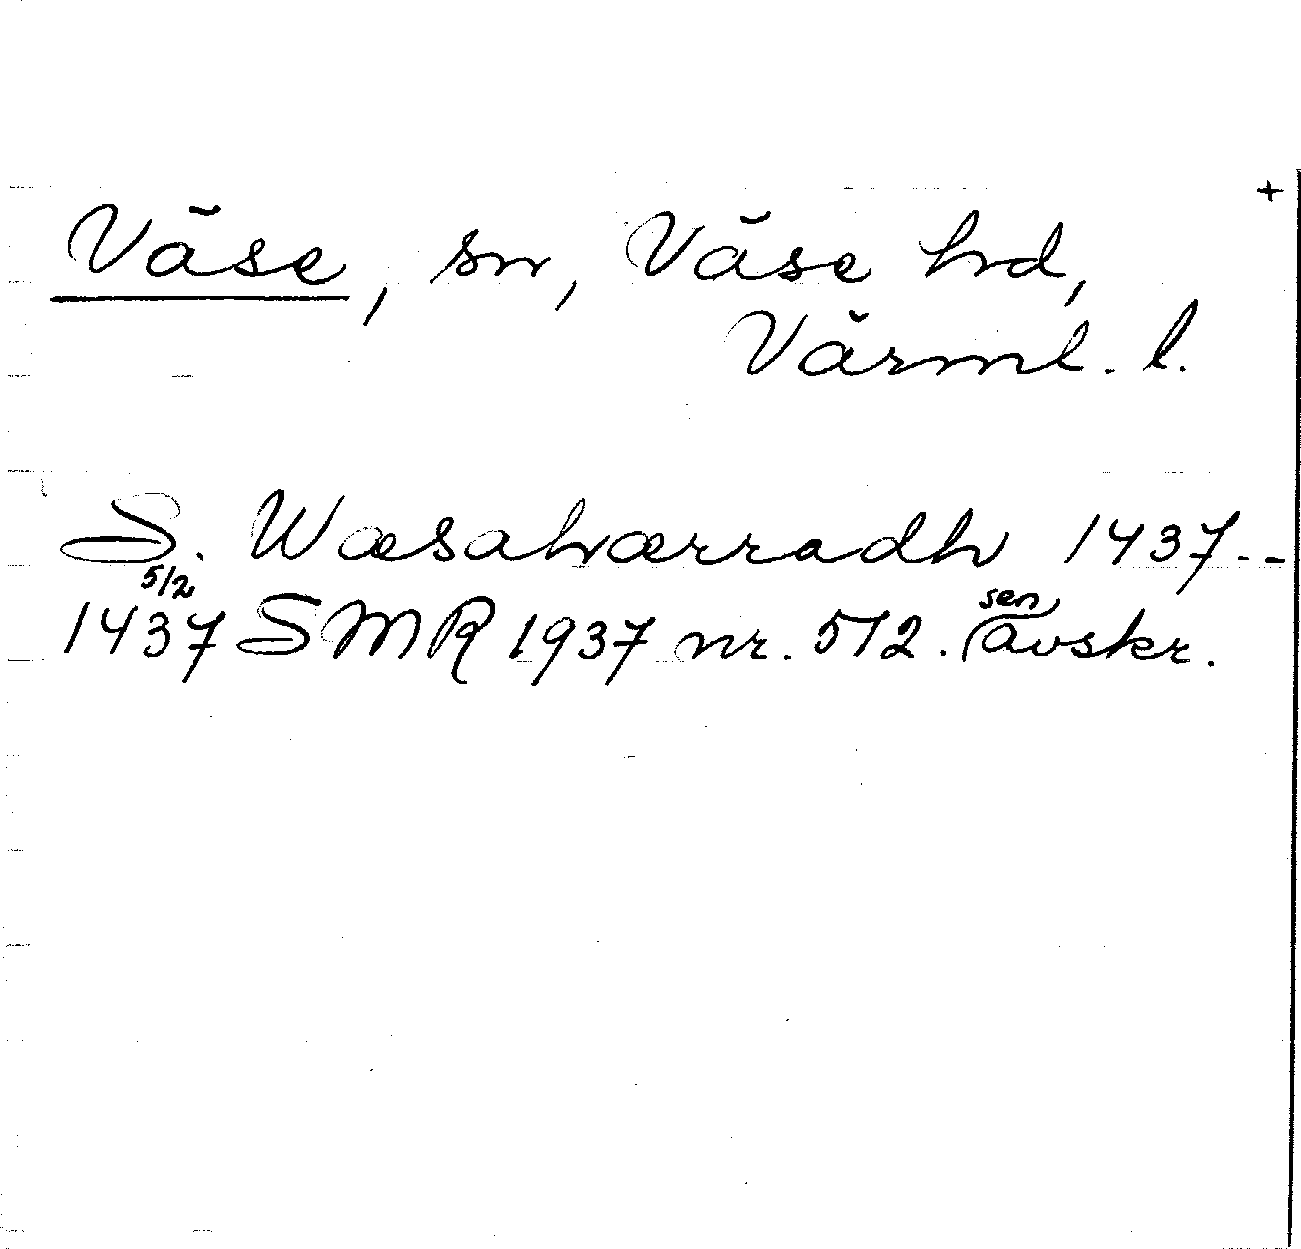 +
Väse, sn, Väse hrd,
Värml. l.
S. Wæsahærradh 1437--
5/2
1437 SMR 1937 nr. 572. sen avskr.